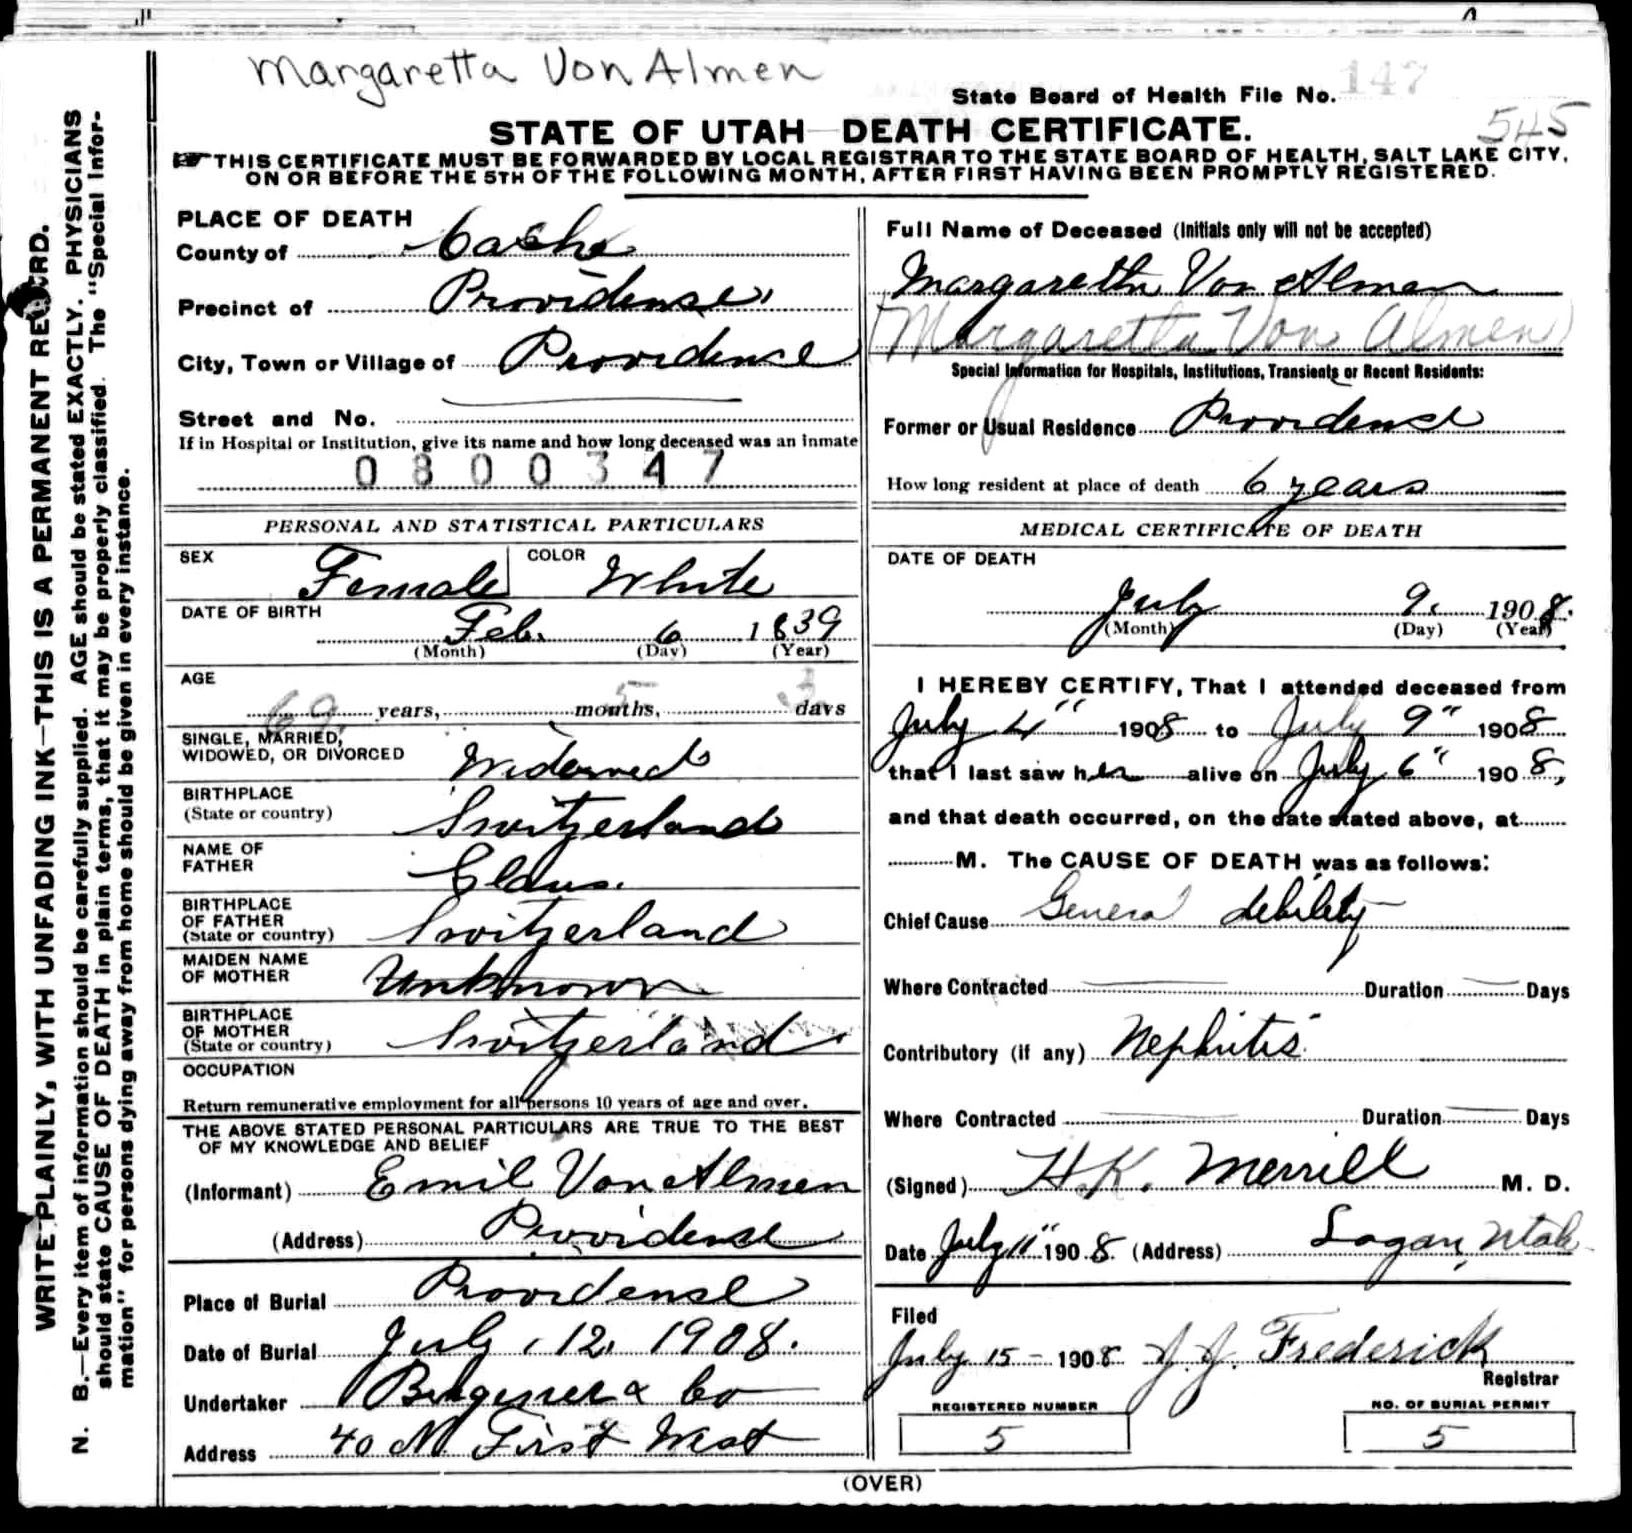 Margaretta Von Almen
State Board of Health File No. 147
545
STATE OF UTAH DEATH CERTIFICATE.
THIS CERTIFICATE MUST BE FORWARDED BY LOCAL REGISTRAR TO THE STATE BOARD OF HEALTH, SALT LAKE CITY,
ON OR BEFORE THE 5TH OF THE FOLLOWING MONTH, AFTER FIRST HAVING BEEN PROMPTLY REGISTERED.
WRITE PLAINLY, WITH UNFADING INK—THIS IS A PERMANENT RECORD.
N. B.—Every item of information should be carefully supplied. AGE should be stated EXACTLY. PHYSICIANS
should state CAUSE OF DEATH in plain terms, that it may be properly classified. The "Special Infor-
mation" for persons dying away from home should be given in every instance.
PLACE OF DEATH
County of Cache
Precinct of Providense
City, Town or Village of Providense
Street and No.
If in Hospital or Institution, give its name and how long deceased was an inmate
0800347
PERSONAL AND STATISTICAL PARTICULARS
SEX Female COLOR White
DATE OF BIRTH
Feb. 6 1839
(Month) (Day) (Year)
AGE
69 years, 5 months, 3 days
SINGLE, MARRIED,
WIDOWED, OR DIVORCED Widowed
BIRTHPLACE
(State or country) Switzerland
NAME OF
FATHER Claus.
BIRTHPLACE
OF FATHER
(State or country) Switzerland
MAIDEN NAME
OF MOTHER Unknown
BIRTHPLACE
OF MOTHER
(State or country) Switzerland
OCCUPATION
Return remunerative employment for all persons 10 years of age and over.
THE ABOVE STATED PERSONAL PARTICULARS ARE TRUE TO THE BEST
OF MY KNOWLEDGE AND BELIEF
(Informant) Emil Von Almen
(Address) Providense
Place of Burial Providense
Date of Burial July 12, 1908.
Undertaker & Co
Address 40 N First West
Full Name of Deceased (Initials only will not be accepted)
Margaretha Von Alman
(Margaretta Von Almen)
Special Information for Hospitals, Institutions, Transients or Recent Residents:
Former or Usual Residence Providense
How long resident at place of death 6 years
MEDICAL CERTIFICATE OF DEATH
DATE OF DEATH
July 9. 1908.
(Month) (Day) (Year)
I HEREBY CERTIFY, That I attended deceased from
July 4" 1908 to July 9" 1908
that I last saw her alive on July 6" 1908,
and that death occurred, on the date stated above, at
M. The CAUSE OF DEATH was as follows:
Chief Cause General debility
Where Contracted Duration Days
Contributory (if any) Nephritis
Where Contracted Duration Days
(Signed) H.K. Merrill M. D.
Date July 11" 1908. (Address) Logan, Utah
Filed
July 15 - 1908 J. J. Frederick
Registrar
REGISTERED NUMBER
5
NO. OF BURIAL PERMIT
5
(OVER)